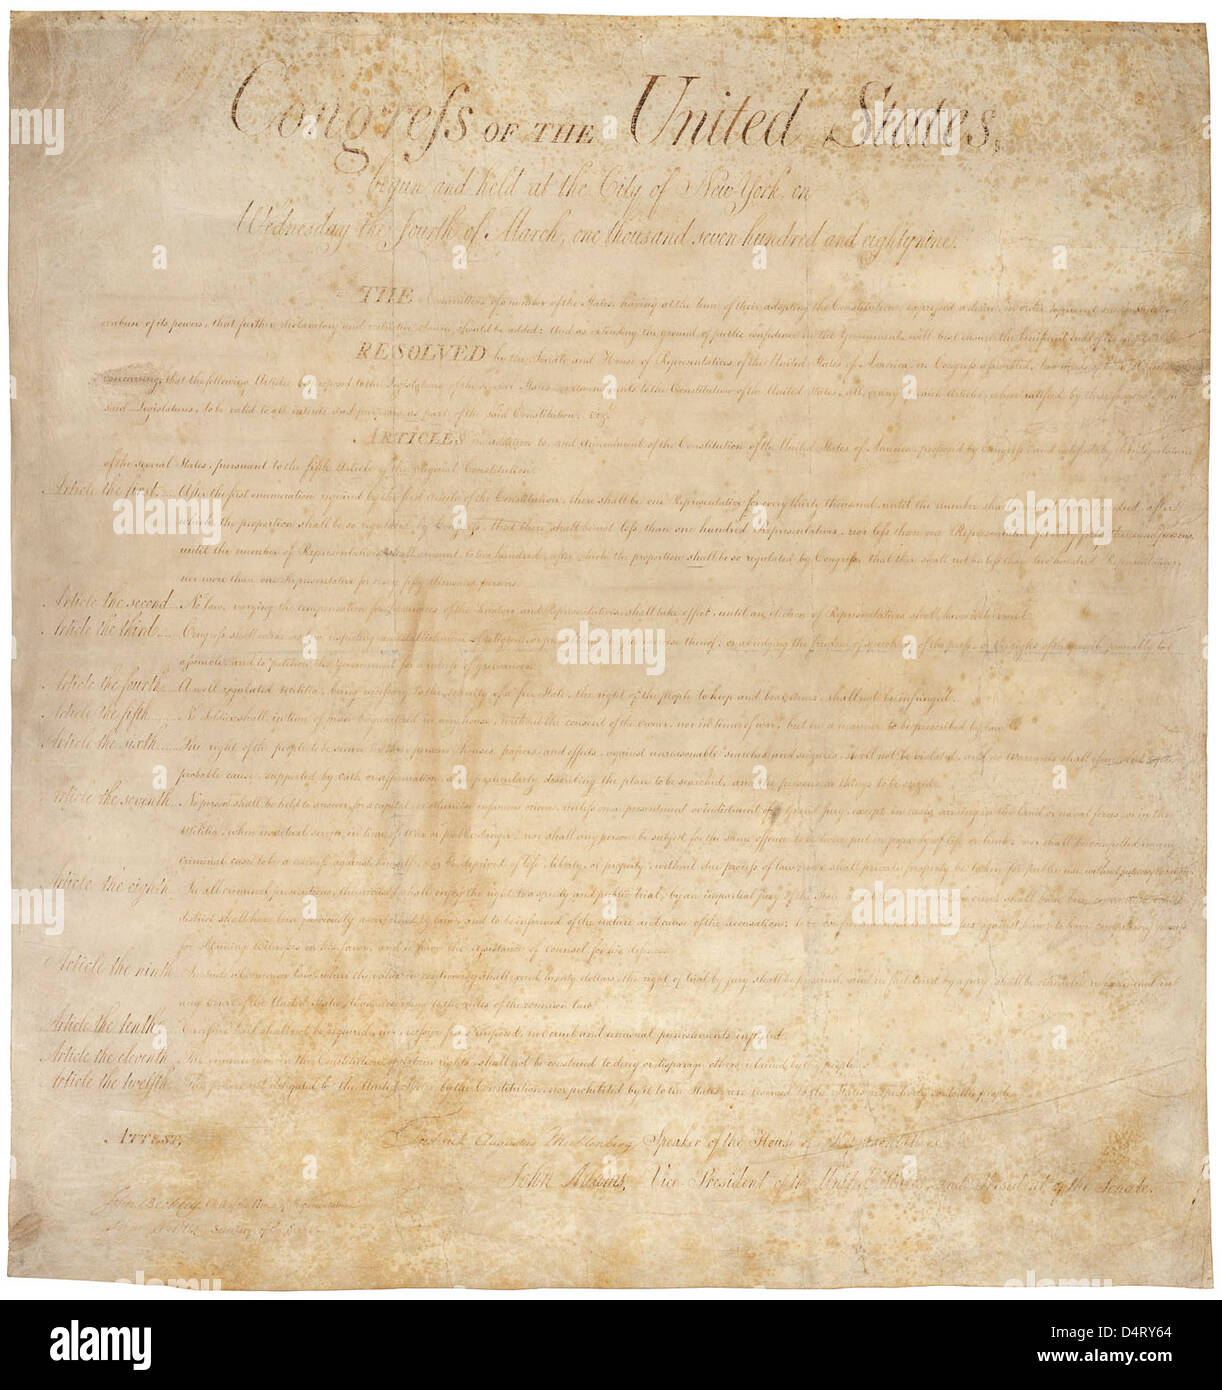 Congreſs OF THE United States,
begun and held at the City of New York, on
Wednesday the fourth of March, one thousand seven hundred and eighty nine.
THE Conventions of a number of the States, having at the time of their adopting the Constitution, expressed a desire, in order to prevent
or abuse of its powers, that further declaratory and restrictive clauses should be added: And as extending the ground of public confidence in the Government, will best ensure the beneficent ends of
RESOLVED by the Senate and House of Representatives of the United States of America, in Congreſs aſsembled, two thirds of
concurring, that the following Articles be proposed to the Legislatures of the several States, as amendments to the Constitution of the United States, all, or any of which Articles, when ratified by three fourths of the
said Legislatures, to be valid to all intents and purposes, as part of the said Constitution; viz.
ARTICLES in addition to, and Amendment of the Constitution of the United States of America, proposed by Congreſs, and ratified by the Legislatures
of the several States, pursuant to the fifth Article of the original Constitution.
Article the first... After the first enumeration required by the first article of the Constitution, there shall be one Representative for every thirty thousand, until the number shall amount to one hundred, after
which, the proportion shall be so regulated by Congreſs, that there shall be not leſs than one hundred Representatives, nor leſs than one Representative for every forty thousand persons,
until the number of Representatives shall amount to two hundred, after which the proportion shall be so regulated by Congreſs, that there shall not be leſs than two hundred Representatives,
nor more than one Representative for every fifty thousand persons.
Article the second... No law, varying the compensation for the services of the Senators and Representatives, shall take effect, until an election of Representatives shall have intervened.
Article the third... Congreſs shall make no law respecting an establishment of religion, or prohibiting the free exercise thereof; or abridging the freedom of speech, or of the preſs; or the right of the people peaceably to
aſsemble, and to petition the Government for a redreſs of grievances.
Article the fourth... A well regulated Militia, being neceſsary to the security of a free State, the right of the people to keep and bear Arms, shall not be infringed.
Article the fifth... No Soldier shall, in time of peace be quartered in any house, without the consent of the owner, nor in time of war, but in a manner to be prescribed by law.
Article the sixth... The right of the people to be secure in their persons, houses, papers, and effects, against unreasonable searches and seizures, shall not be violated, and no Warrants shall iſsue, but upon
probable cause, supported by oath or affirmation, and particularly describing the place to be searched, and the persons or things to be seized.
Article the seventh... No person shall be held to answer for a capital, or otherwise infamous crime, unleſs on a presentment or indictment of a Grand Jury, except in cases arising in the land or naval forces, or in the
Militia, when in actual service in time of War or public danger; nor shall any person be subject for the same offence to be twice put in jeopardy of life or limb; nor shall be compelled in any
criminal case to be a witneſs against himself, nor be deprived of life, liberty, or property, without due proceſs of law; nor shall private property be taken for public use, without just
Article the eighth... In all criminal prosecutions, the accused shall enjoy the right to a speedy and public trial, by an impartial jury of the State and shall have been committed, which
district shall have been previously ascertained by law, and to be informed of the nature and cause of the accusation; to be confronted with the witneſses against him; to have compulsory proceſs
for obtaining witneſses in his favor, and to have the aſsistance of counsel for his defence.
Article the ninth... In suits at common law, where the value in controversy shall exceed twenty dollars, the right of trial by jury shall be preserved, and no fact tried by a jury, shall be otherwise re-examined in
any Court of the United States, than according to the rules of the common law.
Article the tenth... Exceſsive bail shall not be required, nor exceſsive fines imposed, nor cruel and unusual punishments inflicted.
Article the eleventh... The enumeration in the Constitution, of certain rights, shall not be construed to deny or disparage others retained by the people.
Article the twelfth... The powers not delegated to the United States by the Constitution, nor prohibited by it to the States, are reserved to the States respectively, or to the people.
ATTEST,
Frederick Augustus Muhlenberg Speaker of the House of Representatives
John Adams, Vice President of the United States, and President of the Senate.
John Beckley, Clerk of the House of Representatives.
Secretary of the Senate
alamy
Image ID: D4RY64
www.alamy.com